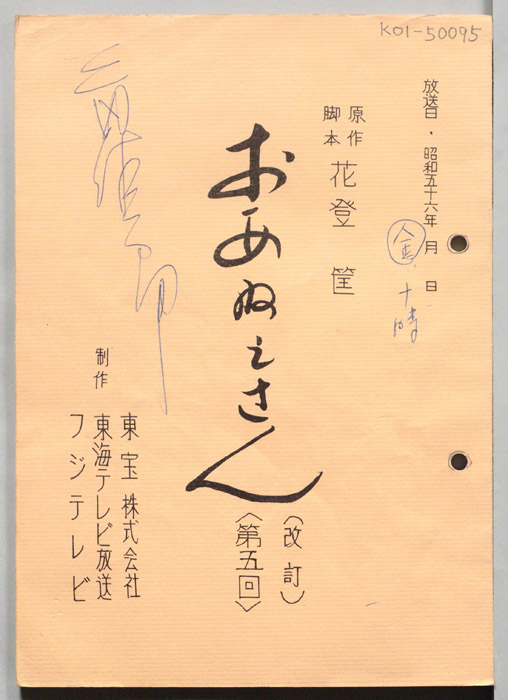 K01-50095
放送日・昭和五十六年 月 日
金 十時
原作
脚本
花登 筐
おあねえさん
(改訂)
〈第五回〉
制作
東宝株式会社
東海テレビ放送
フジテレビ